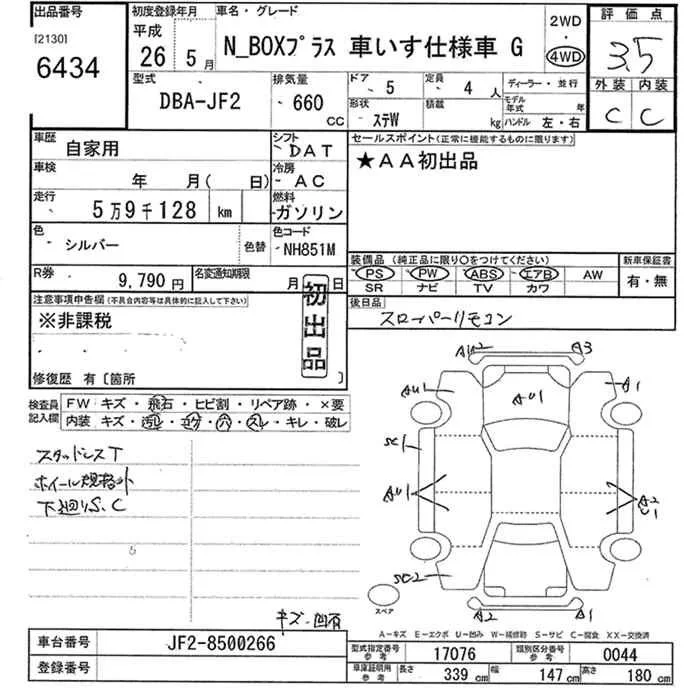 出品番号
[2130]
6434
初度登録年月
平成
26 年 5 月
車名・グレード
N_BOXプラス 車いす仕様車 G
2WD
・
4WD
評価点
3.5
外装 内装
C C
型式
DBA-JF2
排気量
660
CC
ドア
5
定員
4 人
形状
ステW
積載
kg
ディーラー・並行
モデル年式 年
ハンドル 左・右
車歴
自家用
シフト
DAT
車検
年 月( 日)
冷房
AC
走行
5万9千128 km
燃料
ガソリン
色
シルバー
色替
色コード
NH851M
R券
9,790 円
名変通知期限
月 日
セールスポイント(正常に機能するものに限ります)
★AA初出品
装備品 (純正品に限り○をつけてください)
PS PW ABS エアB AW
SR ナビ TV カワ
新車保証書
有・無
後日品
スローパーリモコン
注意事項申告欄(不具合内容等は具体的に記入して下さい)
※非課税
初出品
修復歴 有〔箇所 〕
検査員記入欄
FW キズ・飛石・ヒビ割・リペア跡・×要
内装 キズ・汚れ・コゲ・穴・スレ・キレ・破レ
スタッドレスT
ホイール規格外
下廻りS.C
キズ・凹有
AW2 A3
AU1 AU1 A1
SC1
AU1 A2
C1
SC2
スペア
A2 A1
A-キズ E-エクボ U-凹み W-補修跡 S-サビ C-腐食 XX-交換済
車台番号
JF2-8500266
登録番号
型式指定番号 参考
17076
類別区分番号 参考
0044
車庫証明用 参考
長さ 339 cm 幅 147 cm 高さ 180 cm